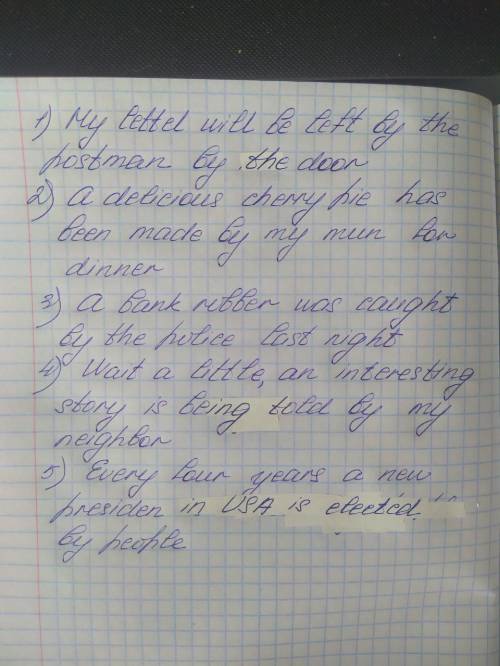 1) My lettel will be left by the
postman by the door
2) A delicious cherry pie has
been made by my mun for
dinner
3) A bank rubber was caught
by the police last night
4) Wait a little, an interesting
story is being told by my
neighbor
5) Every four years a new
presiden in USA is elected
by people